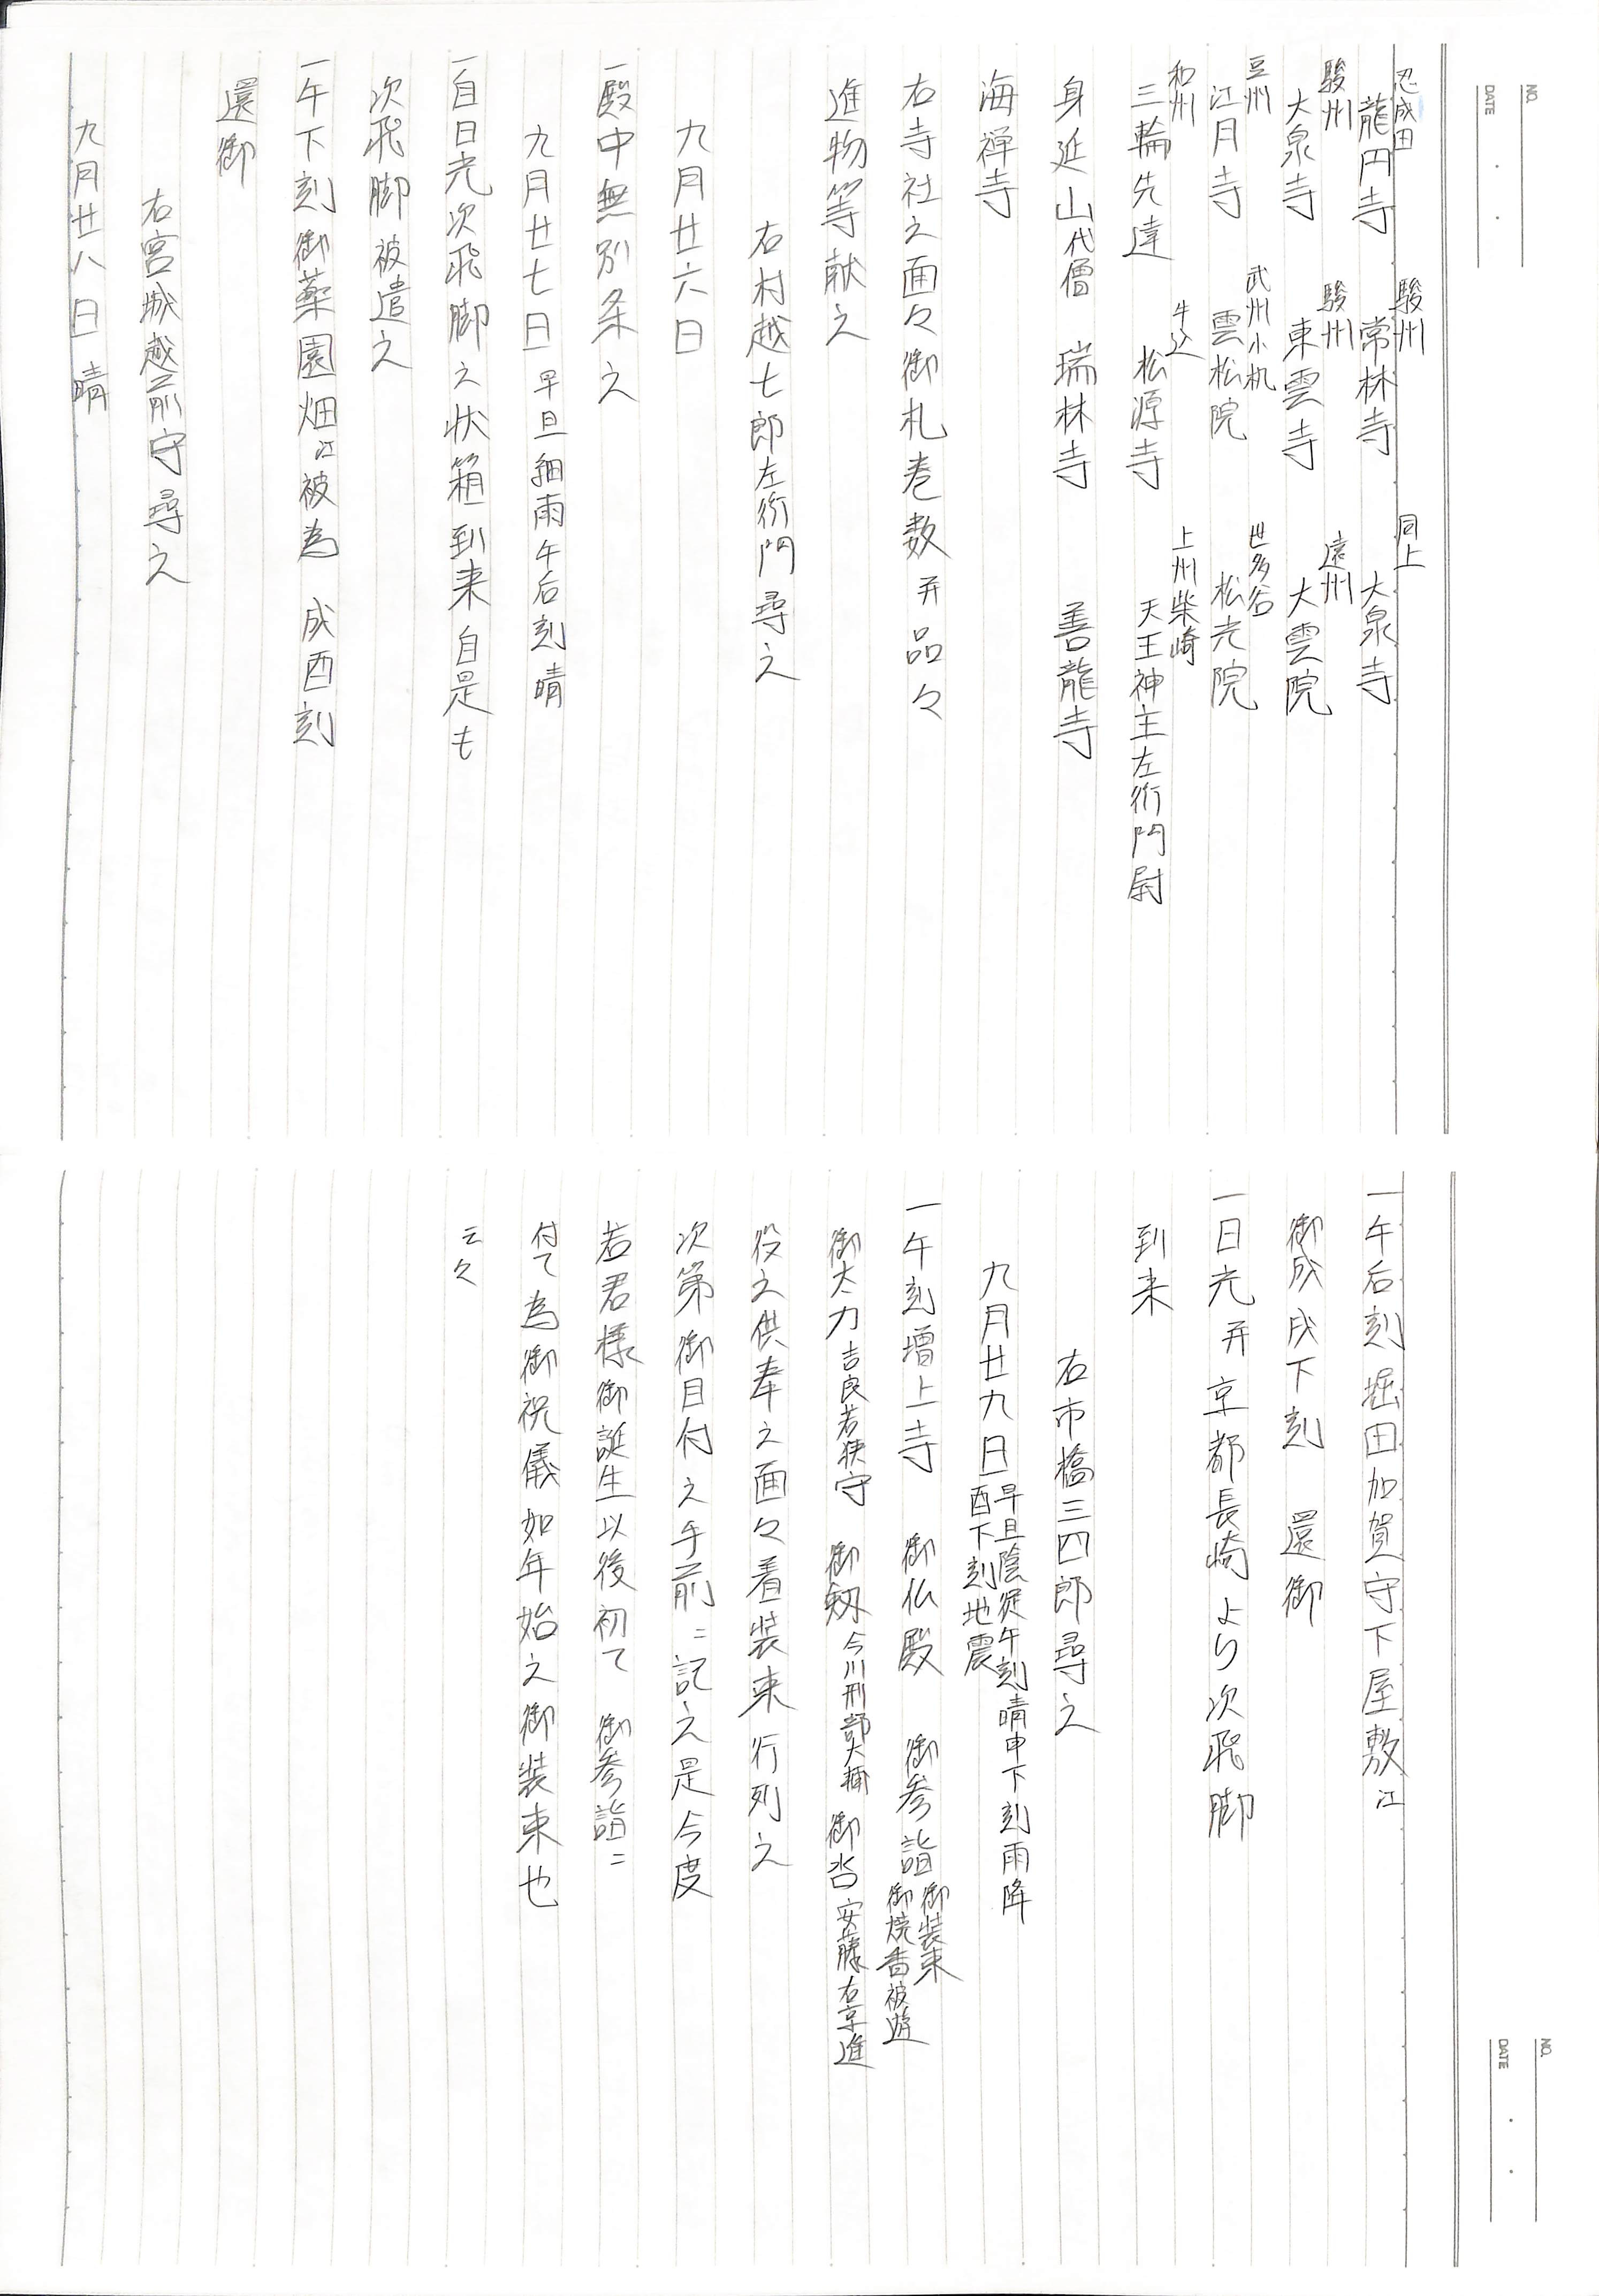 NO.
DATE
忍成田 龍円寺 駿州 常林寺 同上 大泉寺
駿州 大泉寺 駿州 東雲寺 遠州 大雲院
豆州 江月寺 武州小机 雲松院 世多谷 松光院
和州 三輪先達 牛込 松源寺 上州柴崎 天王神主左衛門尉
身延山代僧 瑞林寺 善龍寺
海禅寺
右寺社之面々御札巻数并品々
進物等献之
右村越七郎左衛門尋之
九月廿六日
一殿中無別条之
九月廿七日 早旦細雨午后刻晴
一自日光次飛脚之状箱到来自是も
次飛脚被遣之
一午下刻御薬園畑江被為 成酉刻
還御
右宮城越前守尋之
九月廿八日 晴
NO.
DATE
一午后刻堀田加賀守下屋敷江
御成戌下刻 還御
一日光并京都長崎より次飛脚
到来
右市橋三四郎尋之
九月廿九日 早旦陰従午刻晴申下刻雨降
酉下刻地震
一午刻増上寺 御仏殿 御参詣 御装束
御焼香被遊
御太刀吉良若狭守 御剱今川刑部大輔 御沓安藤右京進
役之供奉之面々着装束行列之
次第御目付之手前ニ記之是今度
若君様御誕生以後初て 御参詣ニ
付て為御祝儀如年始之御装束也
云々